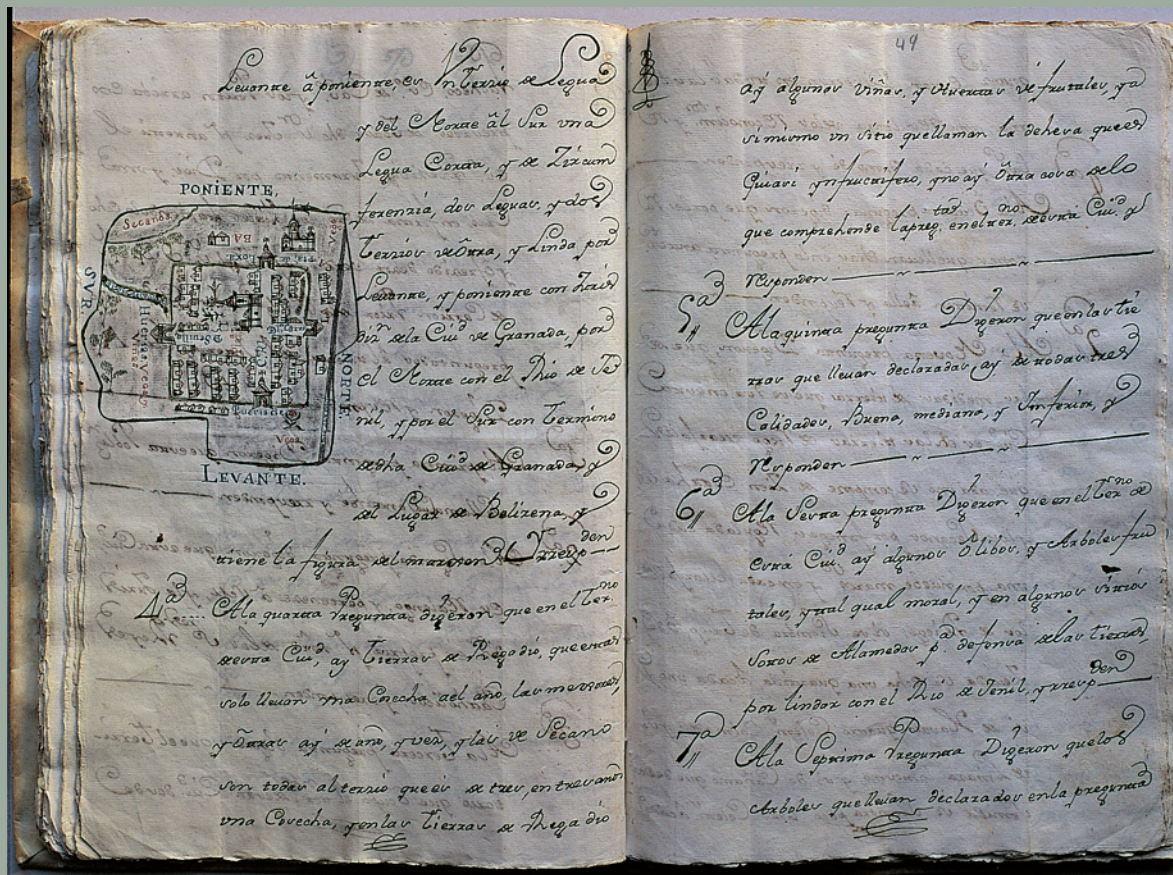 Levante â poniente, es Vn terzio de Legua
y del Norte âl Sur vna
Legua Corta, y de Zircum
ferenzia, dos Leguas, y dos
terzios de ôtra, y Linda por
Levante, y poniente con
dizn de la Ciud de Granada, por
el Norte con el Rio de Je
nil, y por el Sur con termino
de dha Ciud de Granada, y
del Lugar de Belizena, y
tiene la figura del margen Y rresp-den
PONIENTE,
Secanos
BA
Pta. de Loxa
SVR.
Huertas
Viñas
Sevilla
NORTE.
Vega
LEVANTE.
4ª Ala quarta Pregunta digeron que en el Terno
de esta Ciud, ay tierras de Regadio, que estas
solo llevan vna Cosecha ael año, las mexores,
y ôtras ay de año, y vez, y las de Secano
son todas al terzio que es de tres, en tres años
vna Cosecha, y en las tierras de Regadio
49
ay algunas viñas, y Huertas de frutales, ya
simismo vn sitio que llaman la dehesa que es
Quiasi ynfructifero, y no ay ôtra cosa de lo
que comprehende la pregta, en el terno, de esta Ciud, y
rresponden
5ª Ala quinta pregunta Digeron que en las tie
rras que llevan declaradas, ay de todas tres
Calidades, Buena, mediana, y Ynferior, y
rresponden
6ª Ala Sesta pregunta Digeron, que en el Terno de
esta Ciud ay algunos Olibos, y Arboles fru
tales, y tal qual moral, y en algunos sitios
Sotos de Alamedas pa defensa de las tierras,
por lindar con el Rio de Jenil, y rresp-den
7ª Ala Septima Pregunta Digeron que los
Arboles que llevan declarados en la pregunta